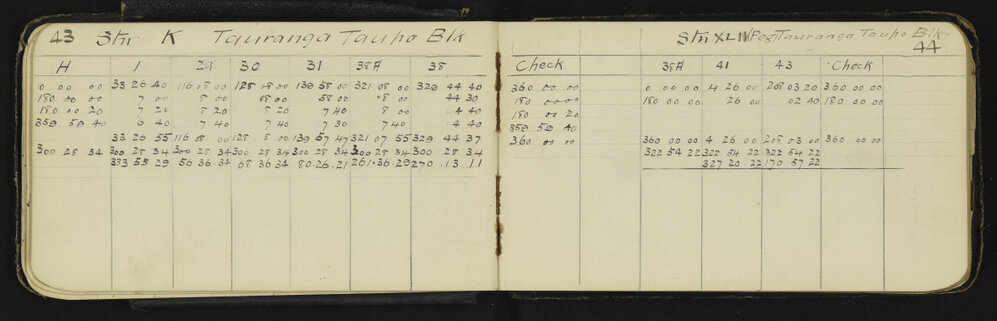 43 Stn K Tauranga Taupo Blk
H 1 29 30 31 38A 38
0 00 00 33 26 40 116 08 00 128 08 00 139 58 00 321 08 00 329 44 40
180 00 00 7 00 8 00 08 00 58 00 8 00 44 30
180 00 20 7 20 8 20 8 20 7 40 8 00 4 40
359 59 40 6 40 7 40 7 40 7 30 7 40 4 40
33 26 55 116 08 00 128 8 00 139 57 47 321 07 55 329 44 37
300 28 34 300 28 34 300 28 34 300 28 34 300 28 34 300 28 34 300 28 34
333 55 29 56 36 34 68 36 34 80 26 21 261 36 29 270 13 11
Stn XLIV Peg Tauranga Taupo Blk
44
Check 38A 41 43 Check
360 00 00 0 00 00 4 26 00 208 03 20 360 00 00
180 00 00 180 00 00 26 00 02 40 180 00 00
180 00 20
359 59 40
360 00 00 360 00 00 4 26 00 208 03 00 360 00 00
322 54 22 322 54 22 322 54 22
327 20 22 170 57 22